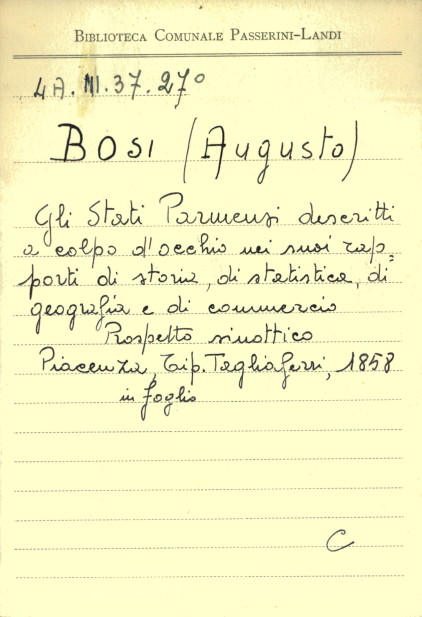 BIBLIOTECA COMUNALE PASSERINI-LANDI
4A. III. 37. 27°
BOSI (Augusto)
Gli Stati Parmensi descritti
a colpo d'occhio nei suoi rap=
porti di storia, di statistica, di
geografia e di commercio
Prospetto sinottico
Piacenza, Tip. Tagliaferri, 1858
in foglio
C